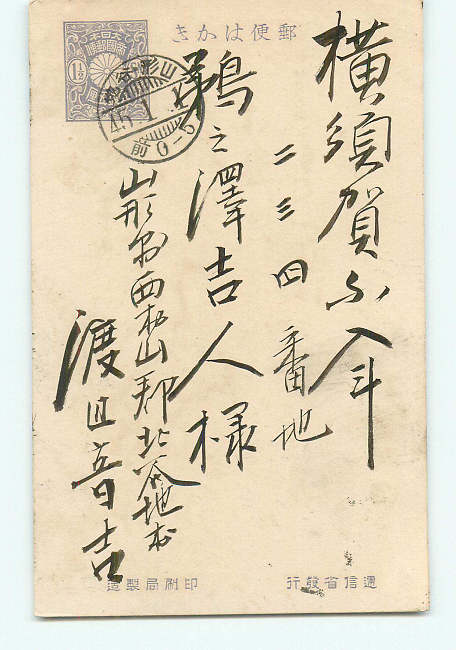 郵便はかき
1½
横須賀不入斗
二三四番地
鵜之澤吉人様
山形縣西村山郡北谷地村
渡辺音吉
山形
45.1.1
前0-5
遞信省發行
印刷局製造